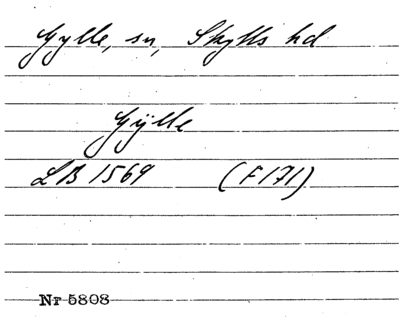 Gylle, sn, Skytts hd
Gÿlle
LB 1569 (F171)
Nr 5808